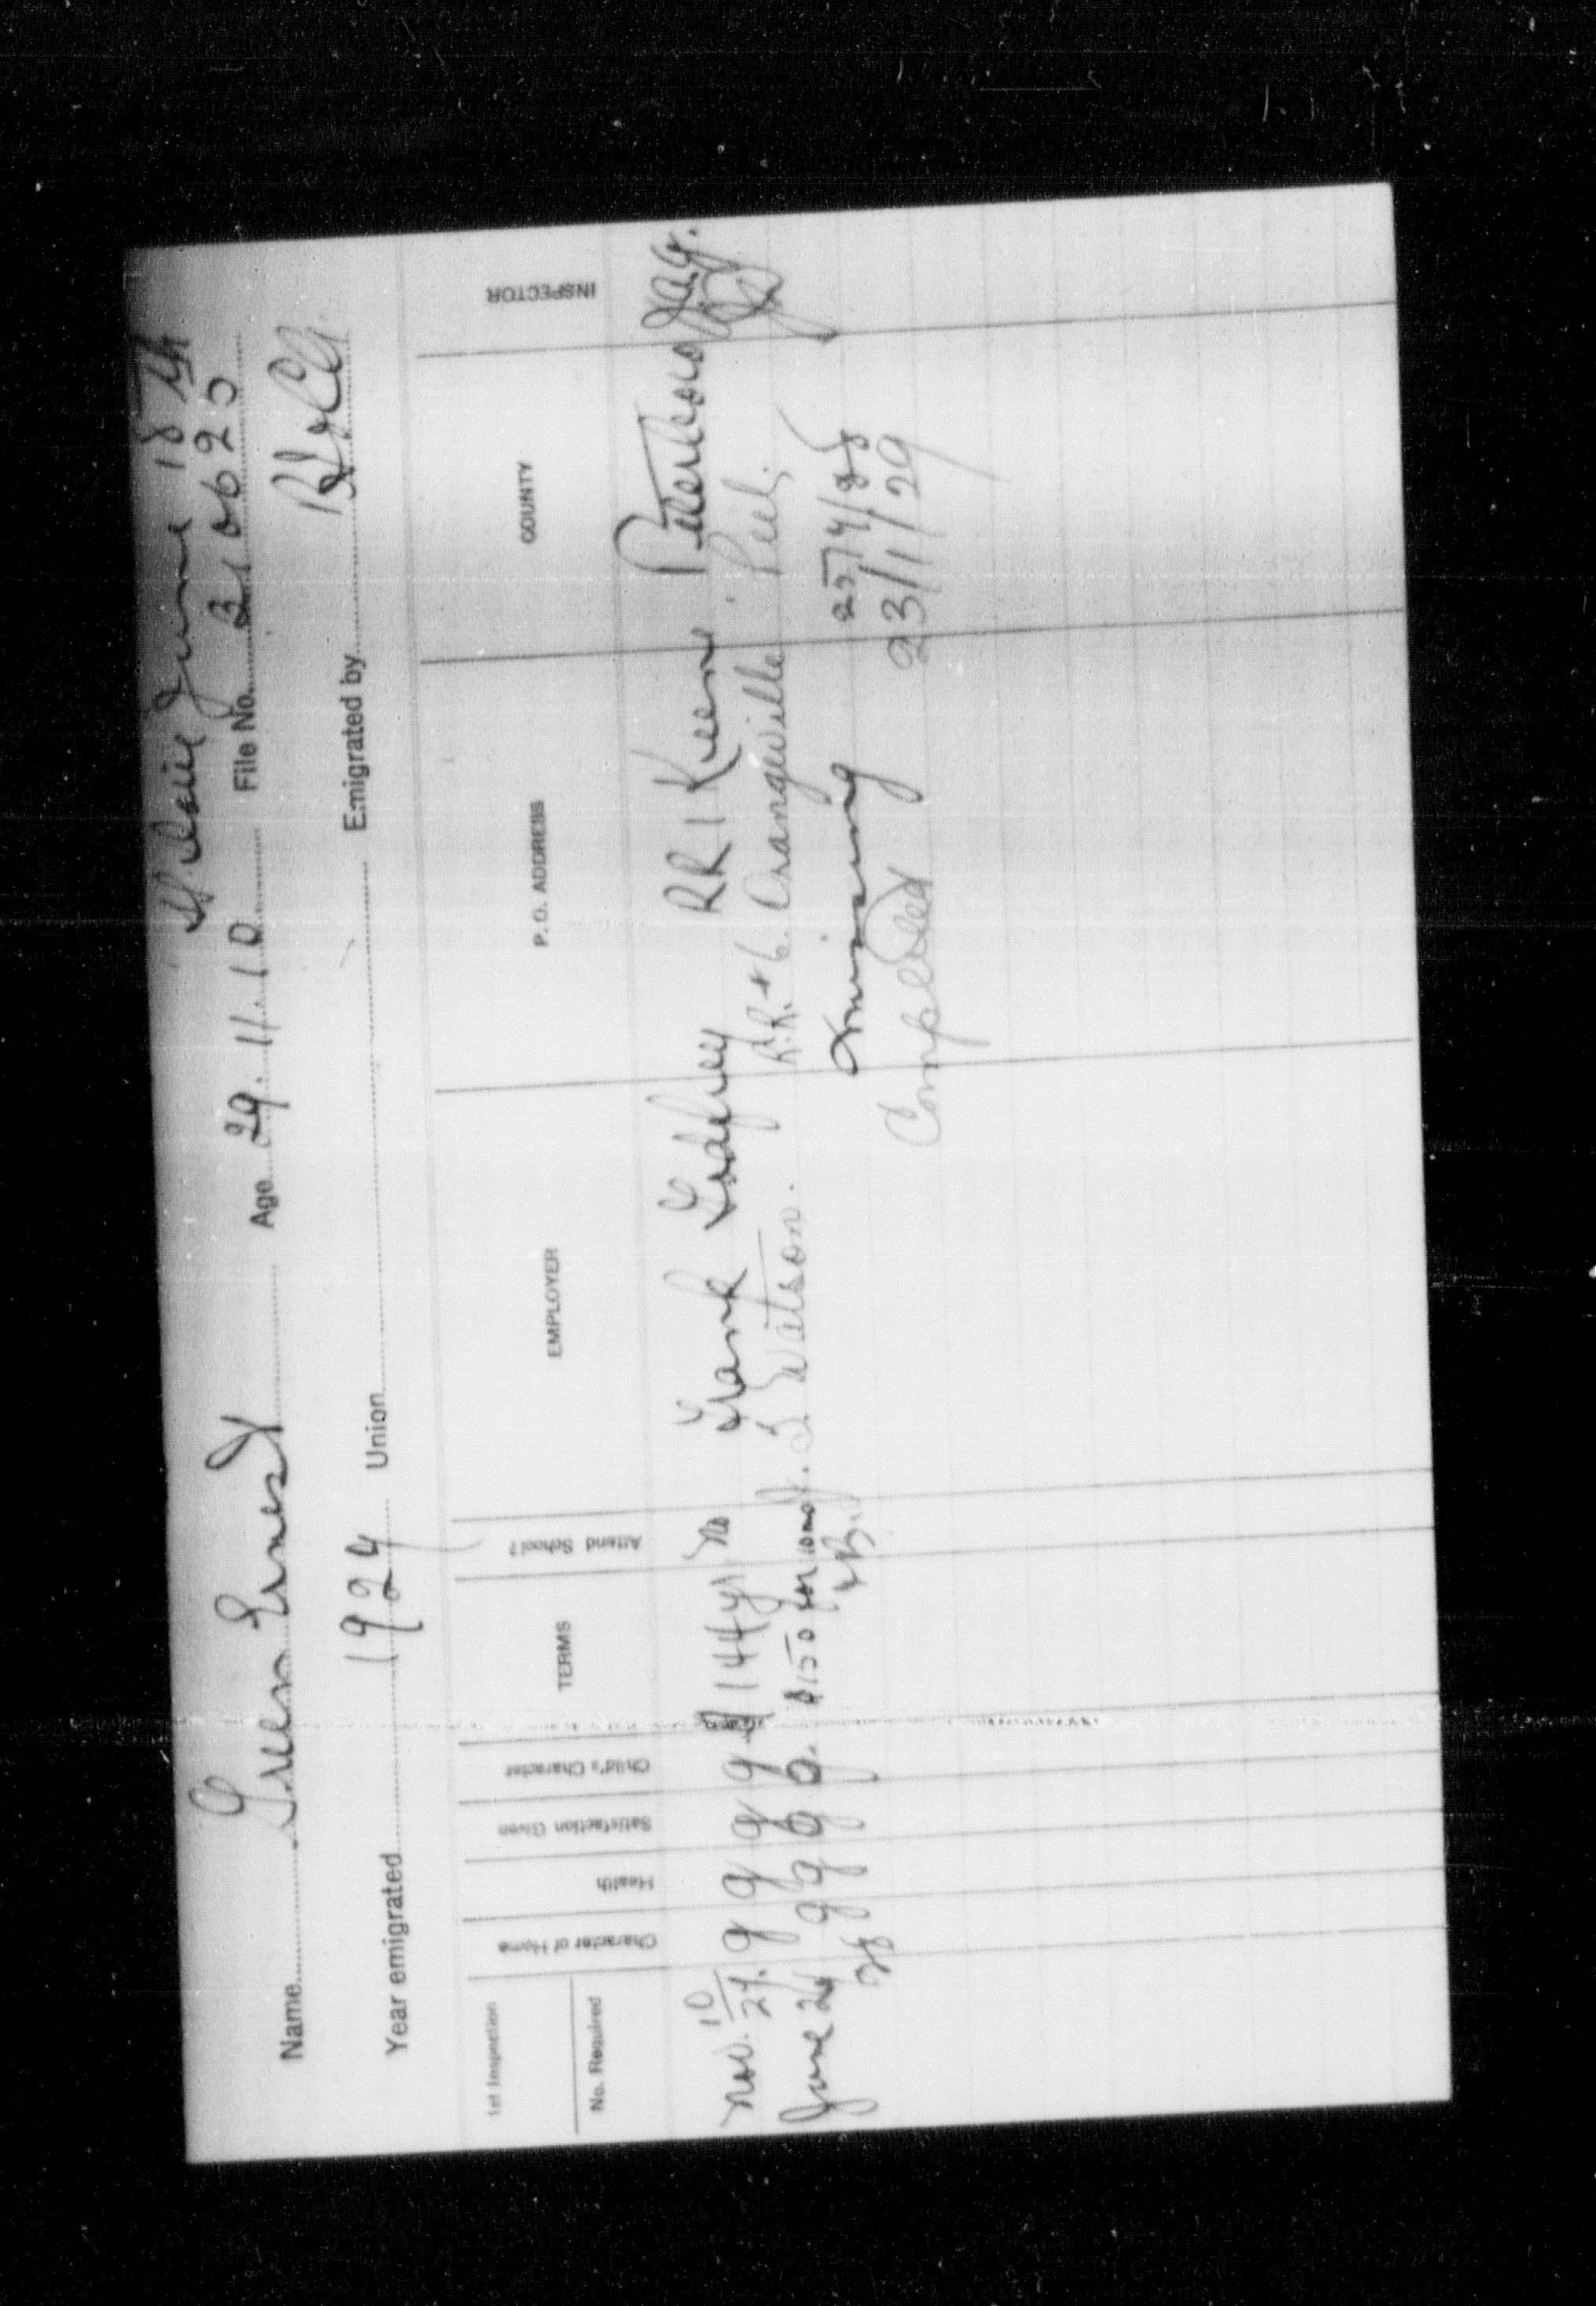 June 18th
Name Green Ernest Age 29.11.10 File No.
Year emigrated 1924 Union Emigrated by
1st Inspection
No. Required
Character of Home Health Satisfaction Given Child's Character TERMS Attend School? EMPLOYER P. O. ADDRESS COUNTY INSPECTOR
Nov. 10/27. g g g g $144 yr. No Frank Godfrey RR 1 Keene Peterboro
June 26 28 g g g g. $150 for 10 mos. + B. Watson. R.R. # 6. Orangeville Peel.
missing
Completed 23/1/29